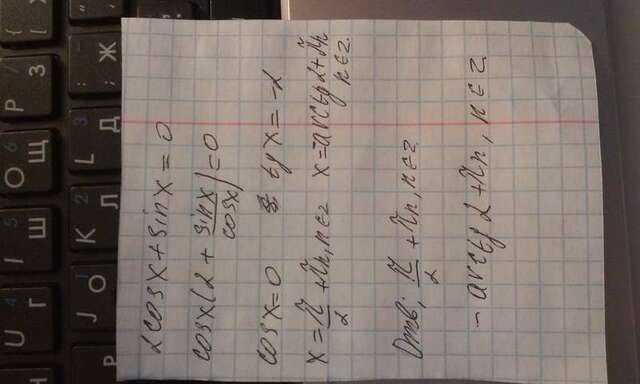 U 4 Г
I 5 Ш
O 6 Щ
P З
{ [
J 1 О
K 2 Л
L 3 Д
: ; Ж
2cosx+sinx=0
cosx(2 + sinx/cosx)=0
cosx=0 tgx=-2
x=π/2+πn, n∈z x=-arctg2+πn
n∈z.
Отв; π/2+πn, n∈z
- arctg2+πn, n∈z